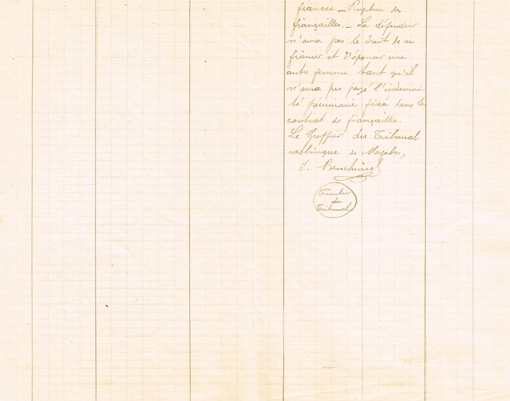 francés _ Rupture des
fiançailles. _ Le défendeur
n'aura pas le droit de se
fiancer et d'épouser une
autre femme tant qu'il
n'aura pas payé l'indemni-
té pécuniaire fixée dans le
contrat de fiançailles.
Le Greffier du Tribunal
rabbinique de Mogador,
Timbre
du
Tribunal